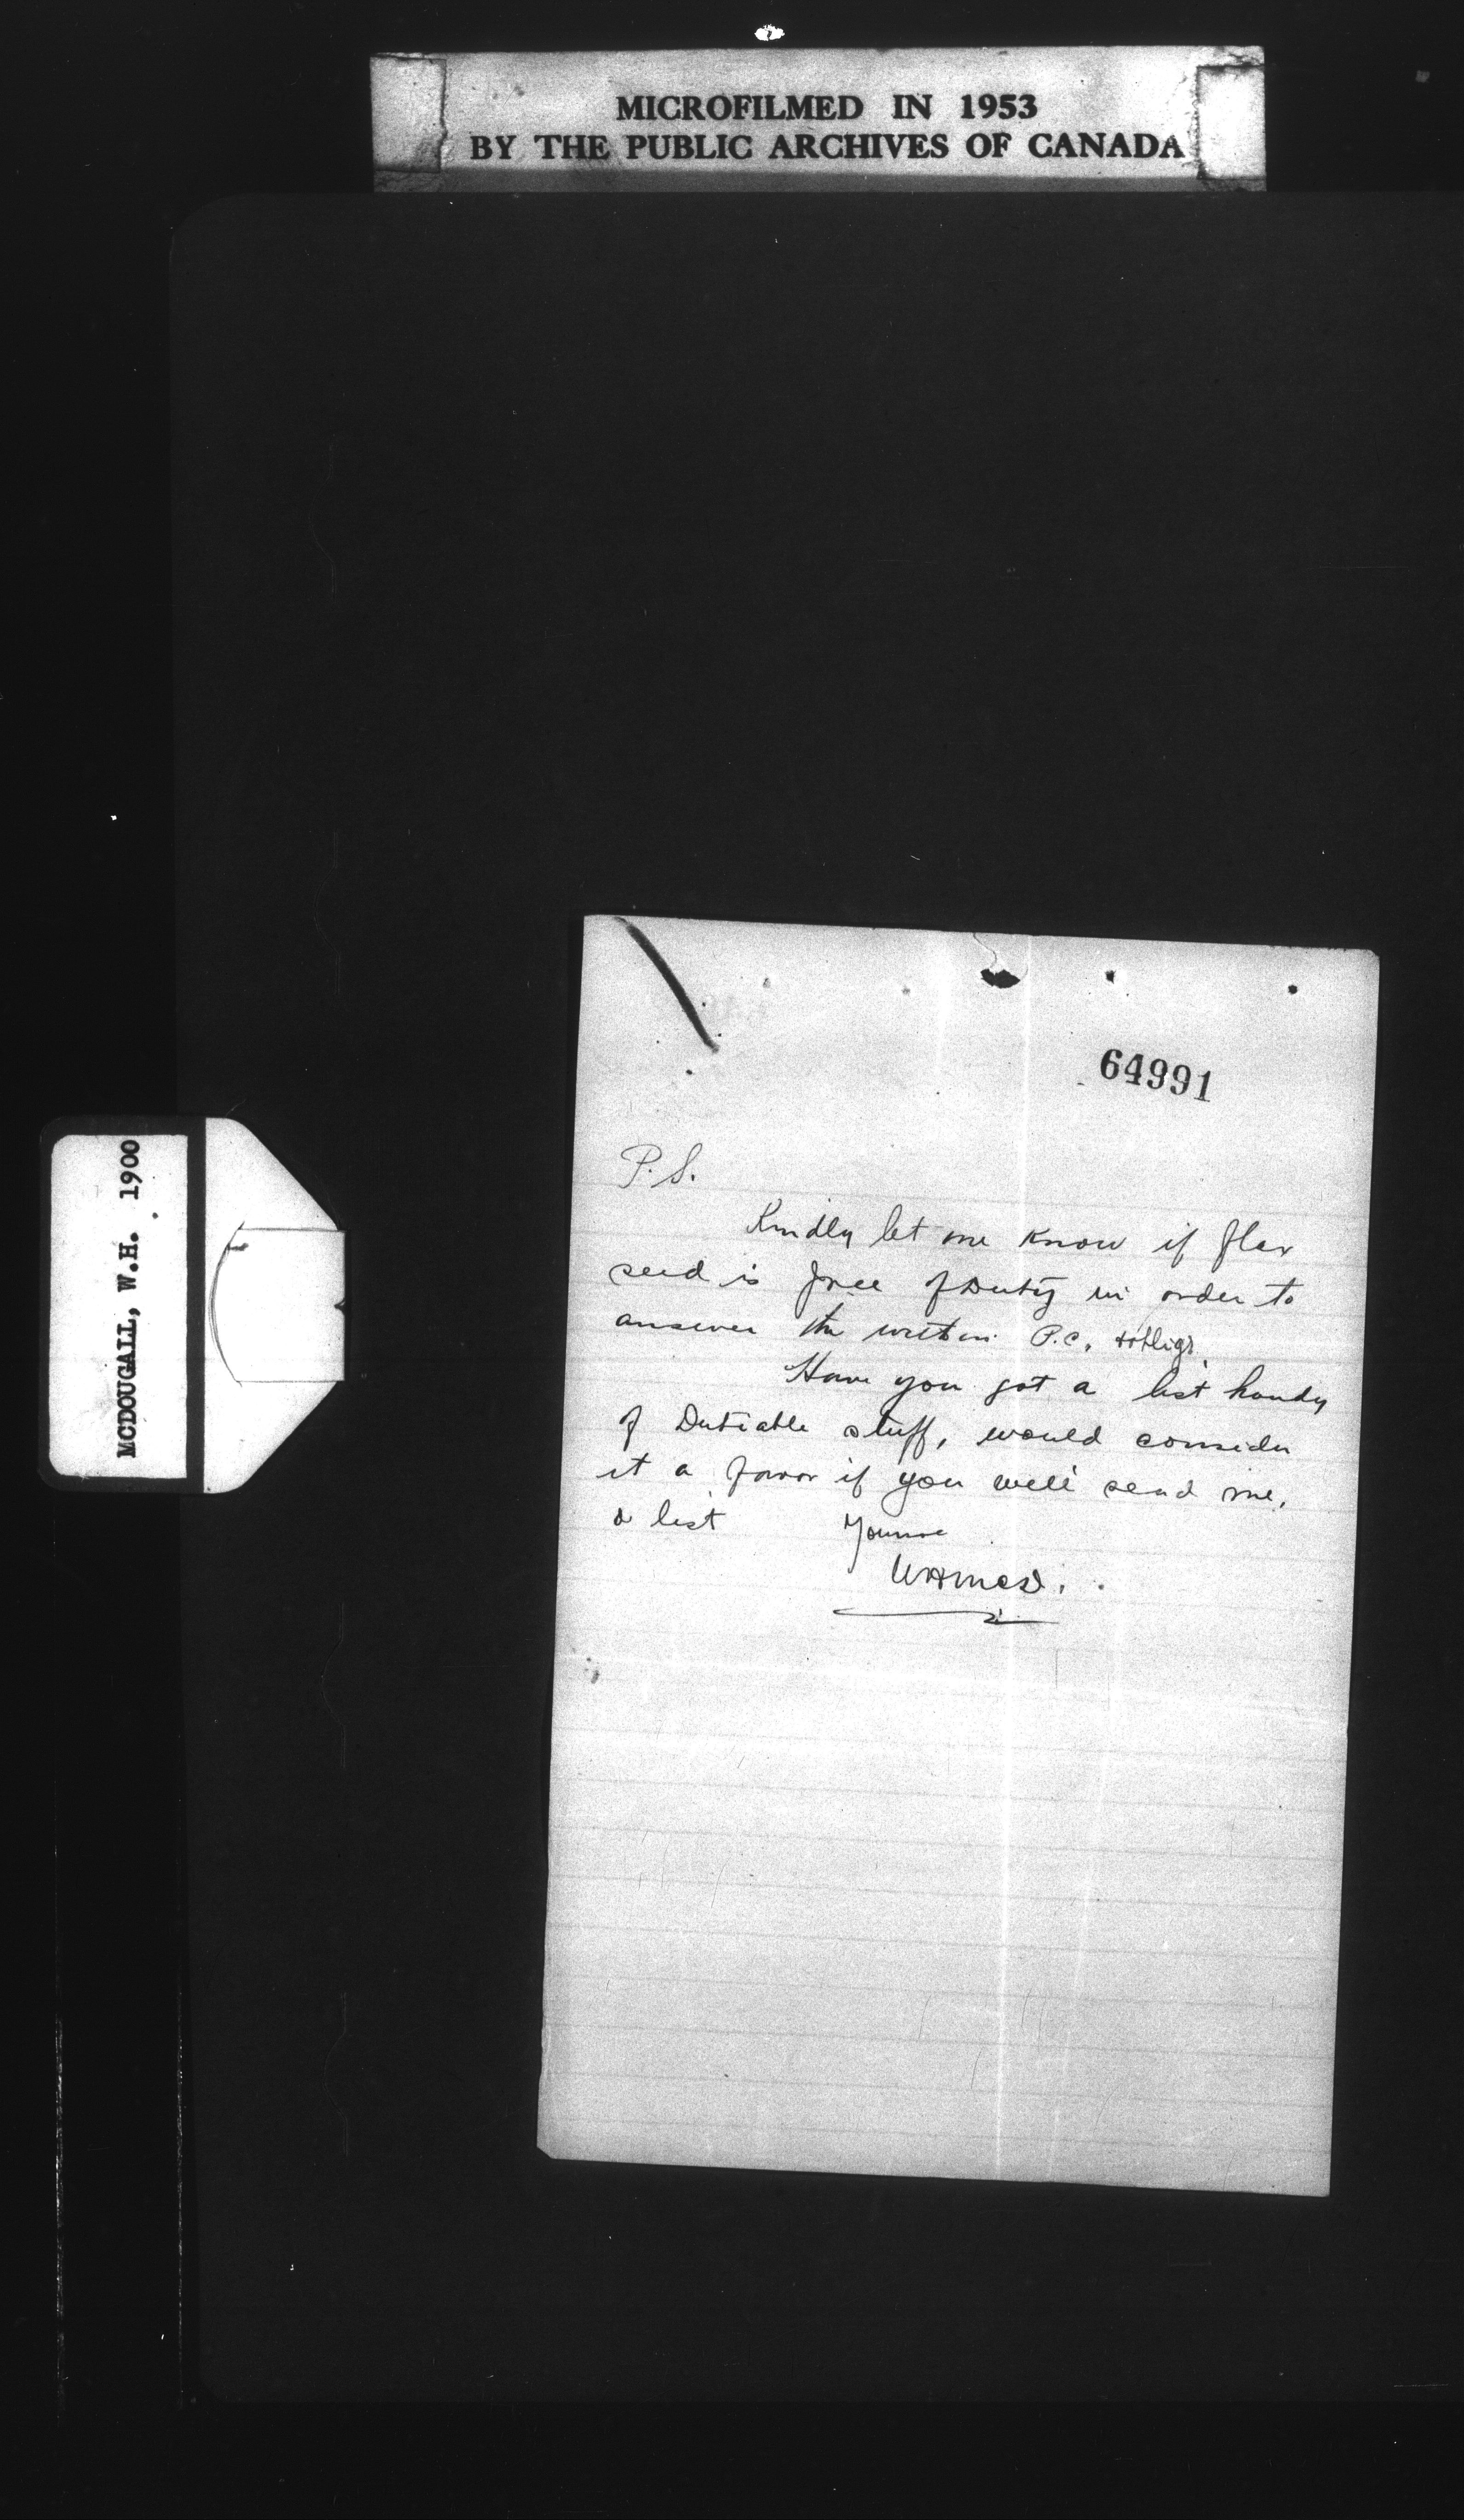 MICROFILMED IN 1953
BY THE PUBLIC ARCHIVES OF CANADA
MCDOUGALL, W.H. 1900
64991
P.S.
Kindly let me know if flax
seed is free of Duty in order to
answer the within P.C. & oblige
Have you got a list handy
of Dutiable stuff, would consider
it a favor if you will send me,
a list Yours
WHMCD.